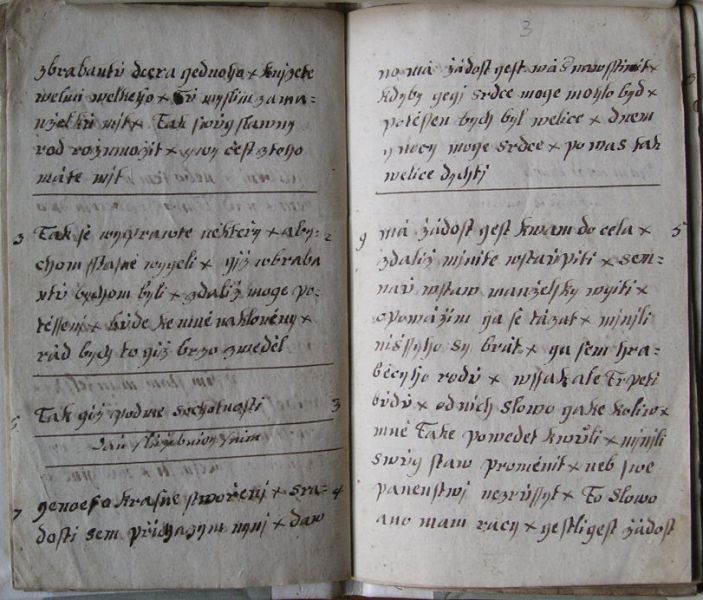 zbrabantů dcera gednoho × knižete
welmi welkeho × Tů myslim zama=
nželků mit × Tak swůg slawny
rod rozmnožit × ywy čest ztoho
máte mit
3 Tak se wyprawte někteřy × aby= 2
chom sstasně wygeli × giž wbraba
ntů bychom byli × zdaliž moge po=
těssenj × bůde ke mně nakloněny ×
rád bych to giž brzo zweděl
5 Tak giž podme sochotnosti 3
7 genoefo krasne stwořenj × sra= 4
dosti sem přichazym nynj × daw
3
no má žádost gest wás nawsstiwit ×
kdyby gegj srdce moge mohlo byd ×
potěssen bych byl welice × dnem
ynocy moge srdce × po was tak
welice dychtj
9 má žádost gest kwam do cela × 5
zdaliž mjnite wstaupiti × sem=
nau wstaw manželsky wgiti ×
opowážim ga se tázat × mjnjli
nissyho sy brát × ga sem hra=
běcyho rodů × wssak ale Trpěti
bůdů × od nich slowo gake koliw ×
mně Take powědet kwůli × mjnjli
swůg staw proměnit × neb swe
panenstwj nezrůssyt × To slowo
ano mam racy × gestli gest žádost